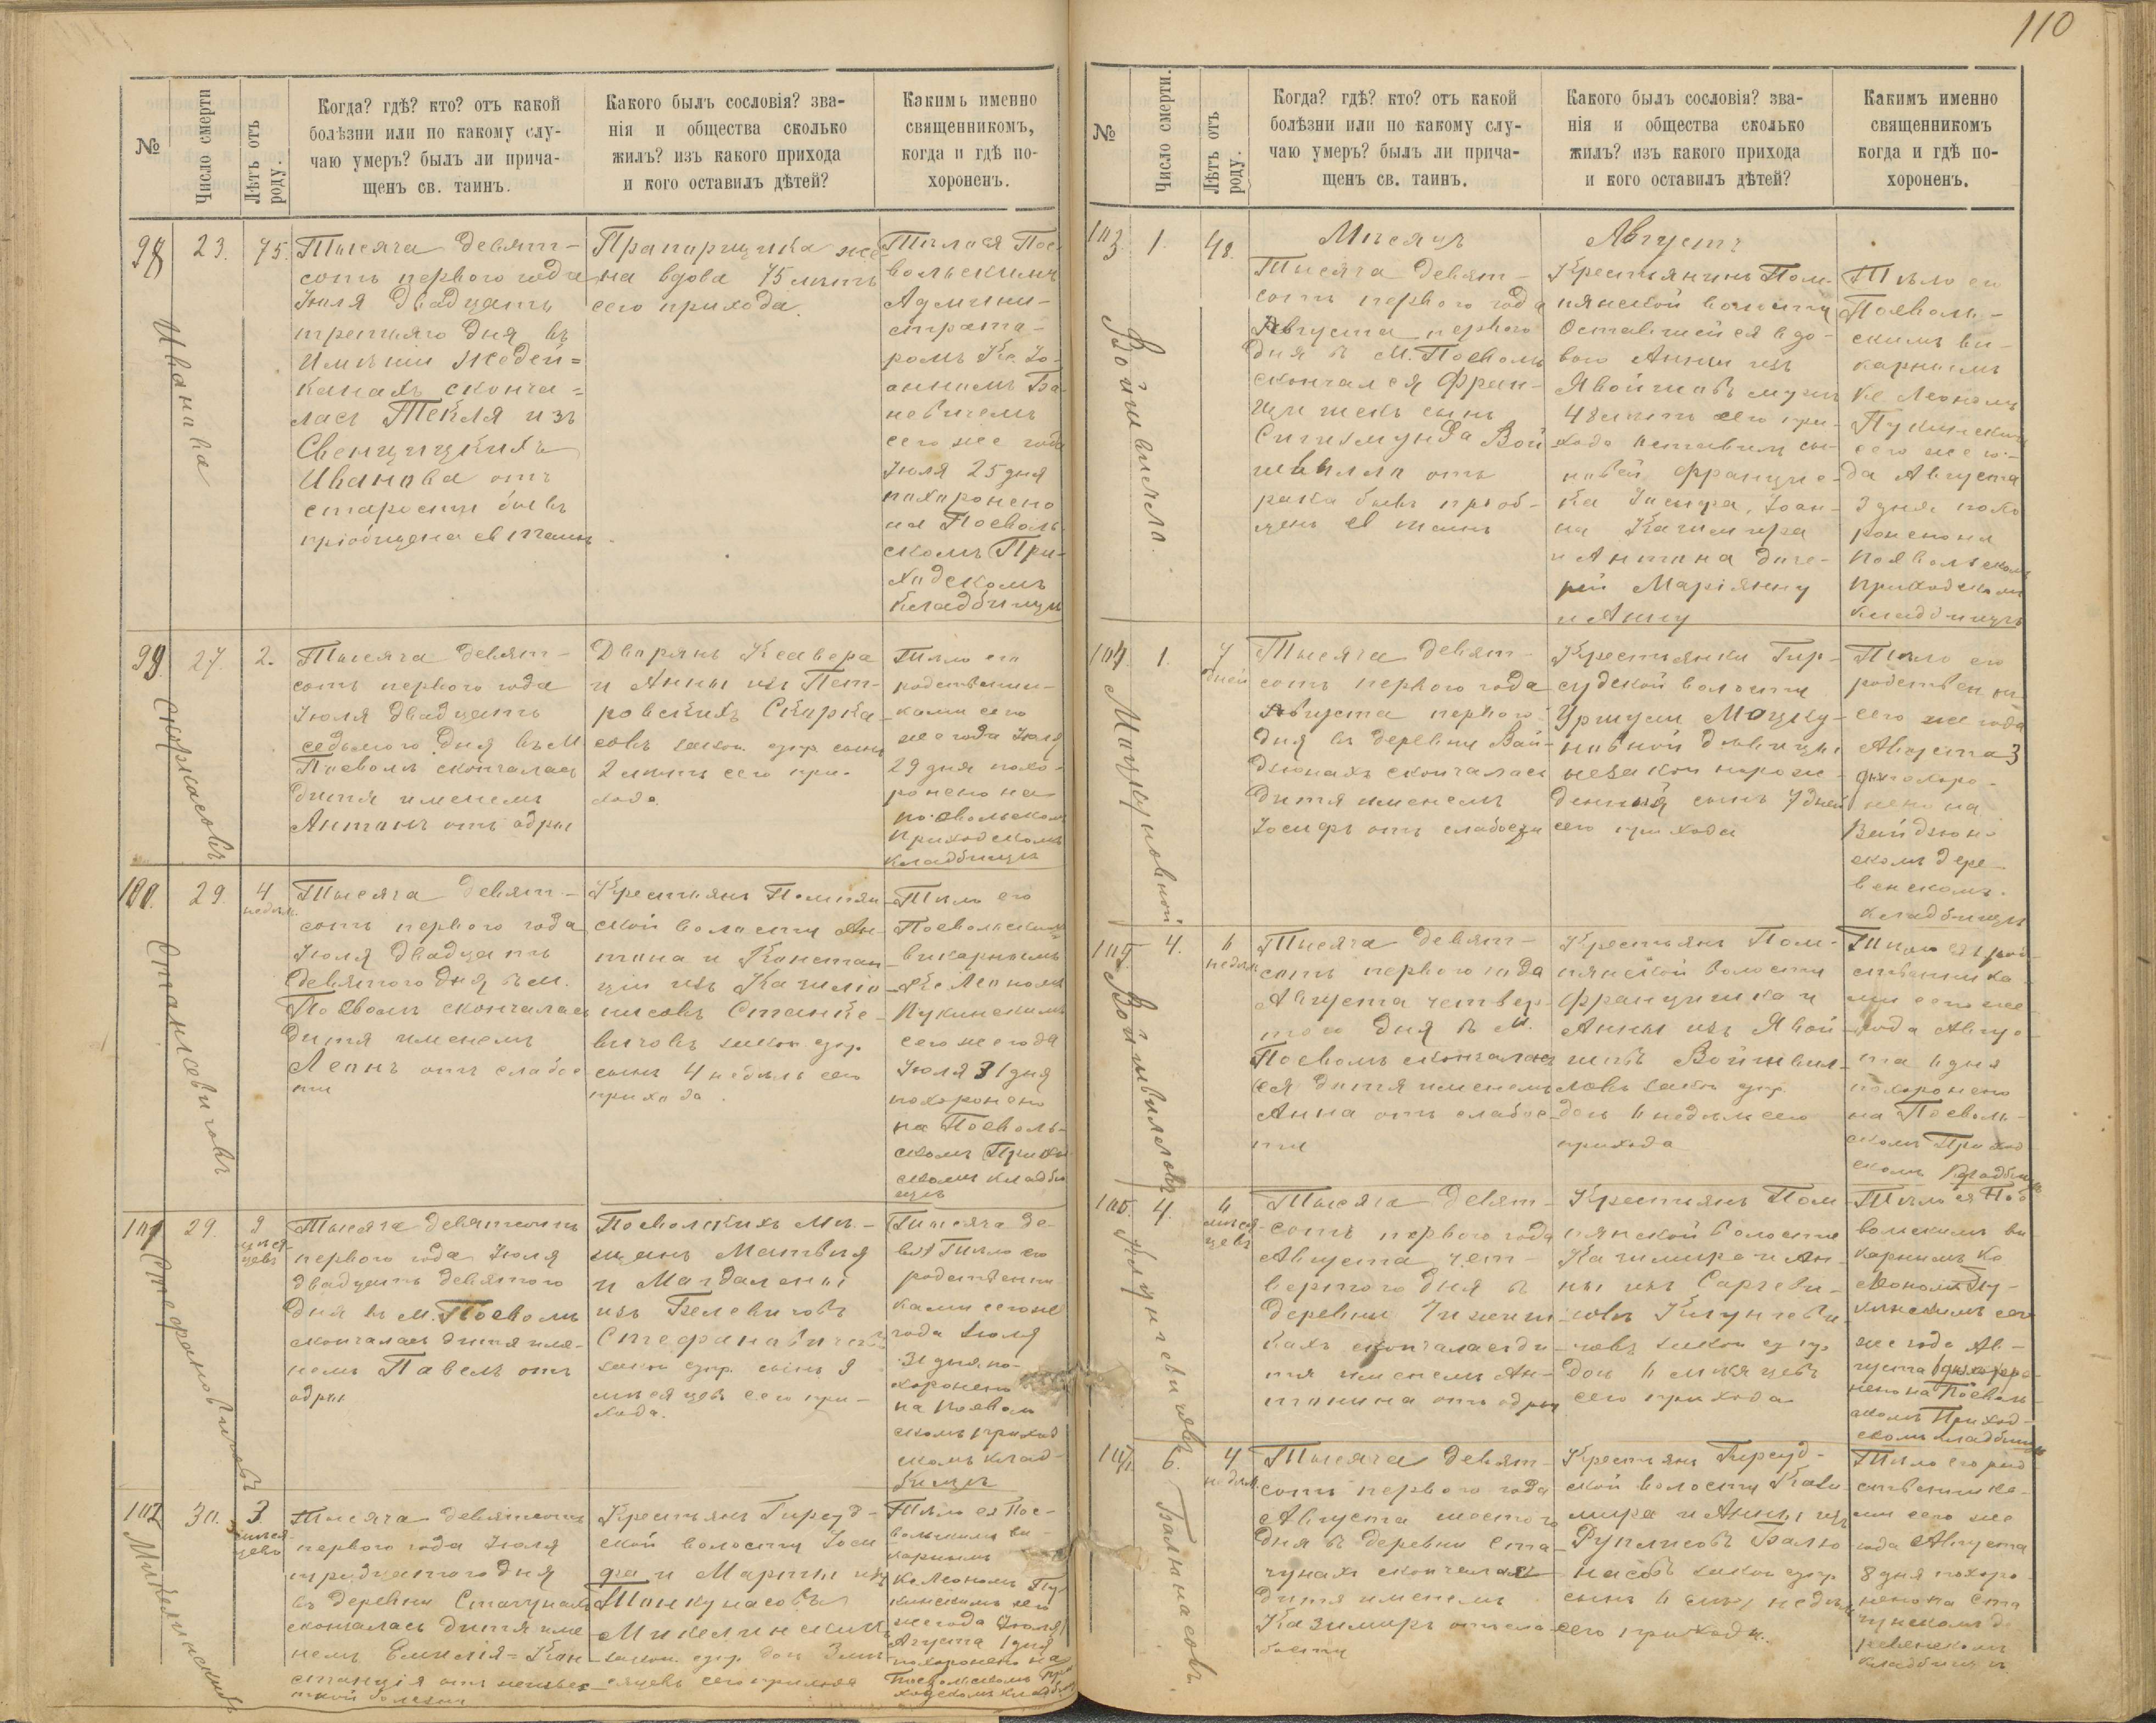 110
№
Число смерти
Лѣтъ отъ роду.
Когда? гдѣ? кто? отъ какой
болѣзни или по какому слу-
чаю умеръ? былъ ли прича-
щенъ св. таинъ.
Какого былъ сословія? зва-
нія и общества сколько
жилъ? изъ какого прихода
и кого оставилъ дѣтей?
Какимъ именно
священникомъ,
когда и гдѣ по-
хороненъ.
98
23.
75.
Иванова
Тысяча девять-
сотъ перваго года
Іюля двадцать
третьяго дня въ
имѣніи Жедей=
канахъ сконча=
лась Текля изъ
Свенцицкихъ
Иванова отъ
старости бывъ
пріобщена св таинъ
Прапорщика же-
на вдова 75 лѣтъ
сего прихода.
Тѣло ея Пос-
вольскимъ
Админи-
страто-
ромъ Кс. Іо-
анномъ
сего же года
Іюля 25 дня
похоронено
на Посволь-
скомъ При-
ходскомъ
кладбищѣ
99
27.
2.
Скоркасовъ
Тысяча девять-
сотъ перваго года
Іюля двадцать
седьмого дня въ М
Посволѣ скончалась
дитя именемъ
Антонъ отъ одры
Дворянъ Ксавера
и Анны изъ Пет-
ровскихъ Скорка-
совъ закон. сынъ
2 лѣтъ сего при-
хода.
Тѣло его
родственни-
ками сего
же года Іюля
29 дня похо-
ронено на
посвольскомъ
приходскомъ
кладбищѣ
100.
29.
4
недѣл.
Станкевичовъ
Тысяча девять-
сотъ перваго года
Іюля двадцать
девятого дня в м.
Посволѣ скончалась
дитя именемъ
Леонъ отъ слабос
ти
Крестьянъ Помпян
ской волости Ан-
тона и Констан
ціи изъ
Станке-
вичовъ закон.
сынъ 4 недѣль сего
прихода.
Тѣло его
Посвольскимъ
викарнымъ
Кс Леономъ
Пукинскимъ
сего же года
Іюля 31 дня
похоронено
на Посволь-
скомъ Приход
скомъ кладби
щѣ
101
29.
9
мѣся-
цевъ
Стефановичовъ
Тысяча девятьсотъ
перваго года Іюля
двадцать девятого
дня въ М. Посволѣ
скончалась дитя име-
немъ Павелъ отъ
одры
Посвольскихъ Мѣ-
щанъ Матвѣя
и Магдалены
изъ Белевичовъ
Стефановичовъ
закон. сынъ 9
мѣсяцевъ сего при-
хода.
Тѣло его
родственни
ками сего же
года Іюля
31 дня по-
хоронено
на Посволь
скомъ приход
скомъ клад-
бищѣ
102
30.
3
мѣся
цевъ
Микелинскихъ
Тысяча девятьсотъ
перваго года Іюля
тридцатого дня
въ деревни Стачунахъ
скончалась дитя име
немъ Емилія=Кон
станція отъ неизвес
тной болезни
Крестьянъ Гируд-
ской волости Іоси
фа и Марты изъ
Микелинскихъ
закон. дочь 3 мѣ-
сяцевъ сего прихода
Тѣло ея Пос-
вольскимъ ви-
карнымъ
Кс Леономъ Пу
кинскимъ сего
же года
Августа 1 дня
похоронено на
Посвольскомъ При
ходскомъ кладби
№
Число смерти.
Лѣтъ отъ роду.
Когда? гдѣ? кто? отъ какой
болѣзни или по какому слу-
чаю умеръ? былъ ли прича-
щенъ св. таинъ.
Какого былъ сословія? зва-
нія и общества сколько
жилъ? изъ какого прихода
и кого оставилъ дѣтей?
Какимъ именно
священникомъ
когда и гдѣ по-
хороненъ.
Мѣсяцъ Августъ
103
1.
48.
Войшвилло.
Тысяча девять-
сотъ перваго года
Августа перваго
дня в М. Посволѣ
скончался Фран-
цишекъ сынъ
Сигизмунда Вой
швилло отъ
рака бывъ пріоб-
щенъ св таинъ
Крестьянинъ Пом-
пянской волости
Оставшейся вдо-
вою Анны изъ
мужъ
48 лѣтъ сего при-
хода оставилъ сы-
новей Францис-
ка Іосифа, Іоан-
на Казимира
и Антона доче-
рей Маріянну
и Анну
Тѣло его
Посволь-
скимъ ви-
карнымъ
Кс Леономъ
Пукинскимъ
сего же го-
да Августа
3 дня похо
ронено на
Посвольскомъ
приходскомъ
кладбищѣ
104
1.
7
дней
Моцкуновной
Тысяча девять-
сотъ перваго года
Августа перваго
дня въ деревни Вай-
дзюнахъ скончалась
дитя именемъ
Іосифъ отъ слабости
Крестьянки Гир-
судской волости
Уршули Моцку-
новной дѣвицы
незакон нарож-
денный сынъ 7 дней
сего прихода
Тѣло его
родственни
сего же года
Августа 3
дня похоро-
нено на
Вайдзюн-
скомъ дере-
венскомъ.
кладбищѣ
105
4.
6
недѣл.
Войшвилловъ
Тысяча девять-
сотъ перваго года
Августа четвер-
того дня в М.
Посволѣ скончалась
дитя именемъ
Анна отъ слабос-
ти
Крестьянъ Пом-
пянской волости
Францишка и
Анны изъ
Войшвил-
ловъ закон
дочь 6 недѣль сего
прихода
Тѣло ея род-
ственника-
ми сего же
года Авгус-
та 6 дня
похоронено
на Посволь-
скомъ Приход
скомъ кладбищѣ
106.
4.
6
мѣся
цевъ
Тысяча девять-
сотъ перваго года
Августа чет-
вертого дня в
деревни
скончалась ди-
тя именемъ Ан-
тонина отъ одры
Крестьянъ Пом
пянской волости
Казимира и Ан-
ны изъ
закон
дочь 6 мѣсяцевъ
сего прихода
Тѣло ея Пос
вольскимъ ви
карнымъ Кс
Леономъ Пу-
кинскимъ сего
же года Ав-
густа 6 дня похоро-
нено на Посволь-
скомъ Приход-
скомъ кладбищѣ
107.
6.
4
недѣл.
Бальчнасовъ
Тысяча девять-
сотъ перваго года
Августа шестого
дня в деревни Ста-
чунахъ скончалась
дитя именемъ
Казимиръ отъ сла-
бости
Крестьянъ Гируд-
ской волости Кази-
мира и Анны изъ
закон
сынъ недѣль
сего прихода.
Тѣло его род-
ственника-
ми сего же
года Августа
8 дня похоро-
нено на Ста
чунскомъ де
ревенскомъ
кладбищѣ